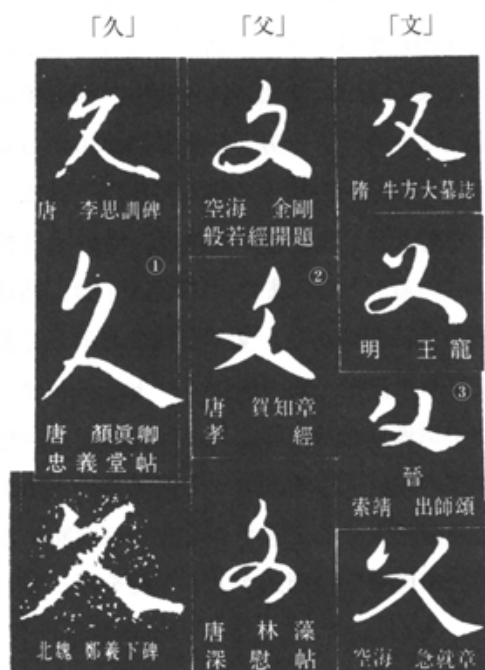 「久」
久
唐 李思訓碑
①
久
唐 顏眞卿
忠義堂帖
久
北魏 鄭羲下碑
「父」
空海 金剛
般若經開題
②
唐 賀知章
孝 經
唐 林藻
深慰帖
「文」
隋 牛方大墓誌
明 王寵
③
晉
索靖 出師頌
空海 急就章